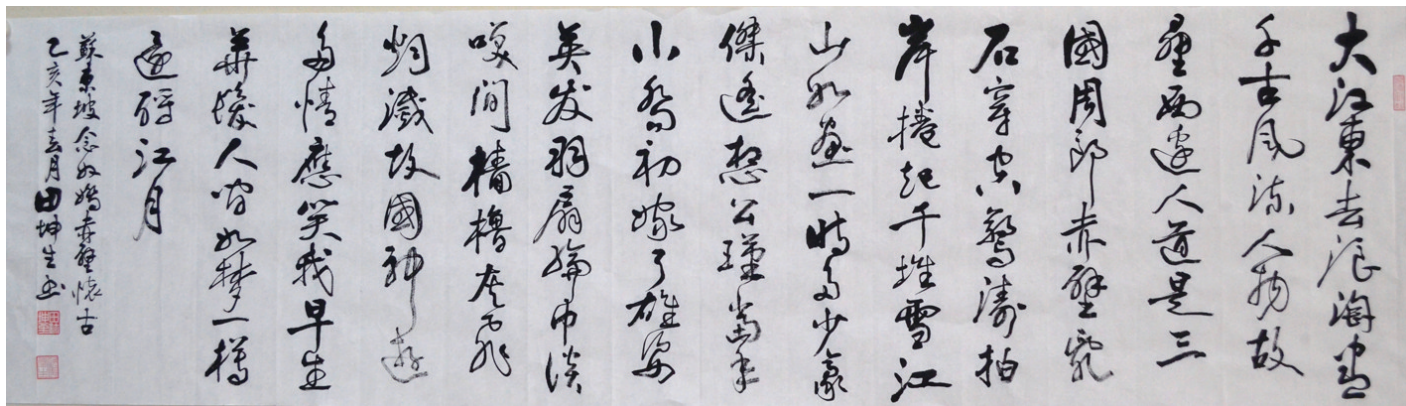 大江東去浪淘盡
千古風流人物故
壘西邊人道是三
國周郎赤壁亂
石穿空驚濤拍
岸捲起千堆雪江
山如畫一時多少豪
傑遙想公瑾當年
小喬初嫁了雄姿
英发羽扇綸巾談
笑間檣櫓灰飛
烟滅故國神遊
多情應笑我早生
華髮人間如夢一樽
還酹江月
蘇東坡念奴嬌赤壁懷古
乙亥年月田坤生书